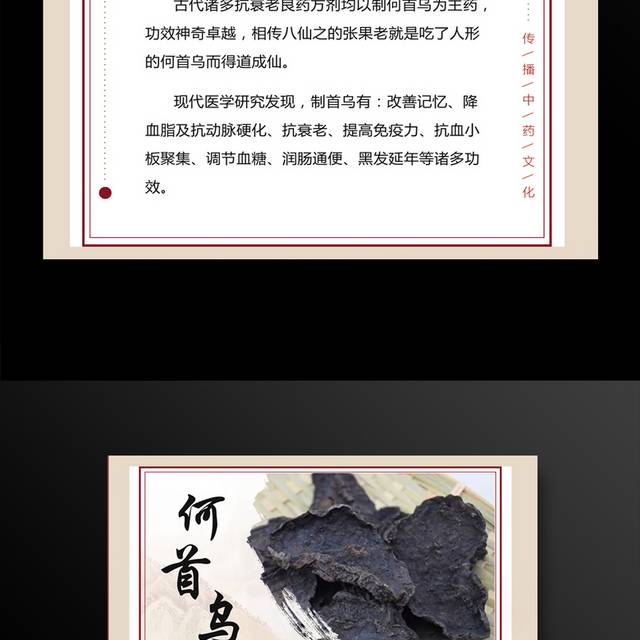 古代诸多抗衰老良药方剂均以制何首乌为主药，
功效神奇卓越，相传八仙之的张果老就是吃了人形
的何首乌而得道成仙。
现代医学研究发现，制首乌有：改善记忆、降
血脂及抗动脉硬化、抗衰老、提高免疫力、抗血小
板聚集、调节血糖、润肠通便、黑发延年等诸多功
效。
传/播/中/药/文/化
何首乌